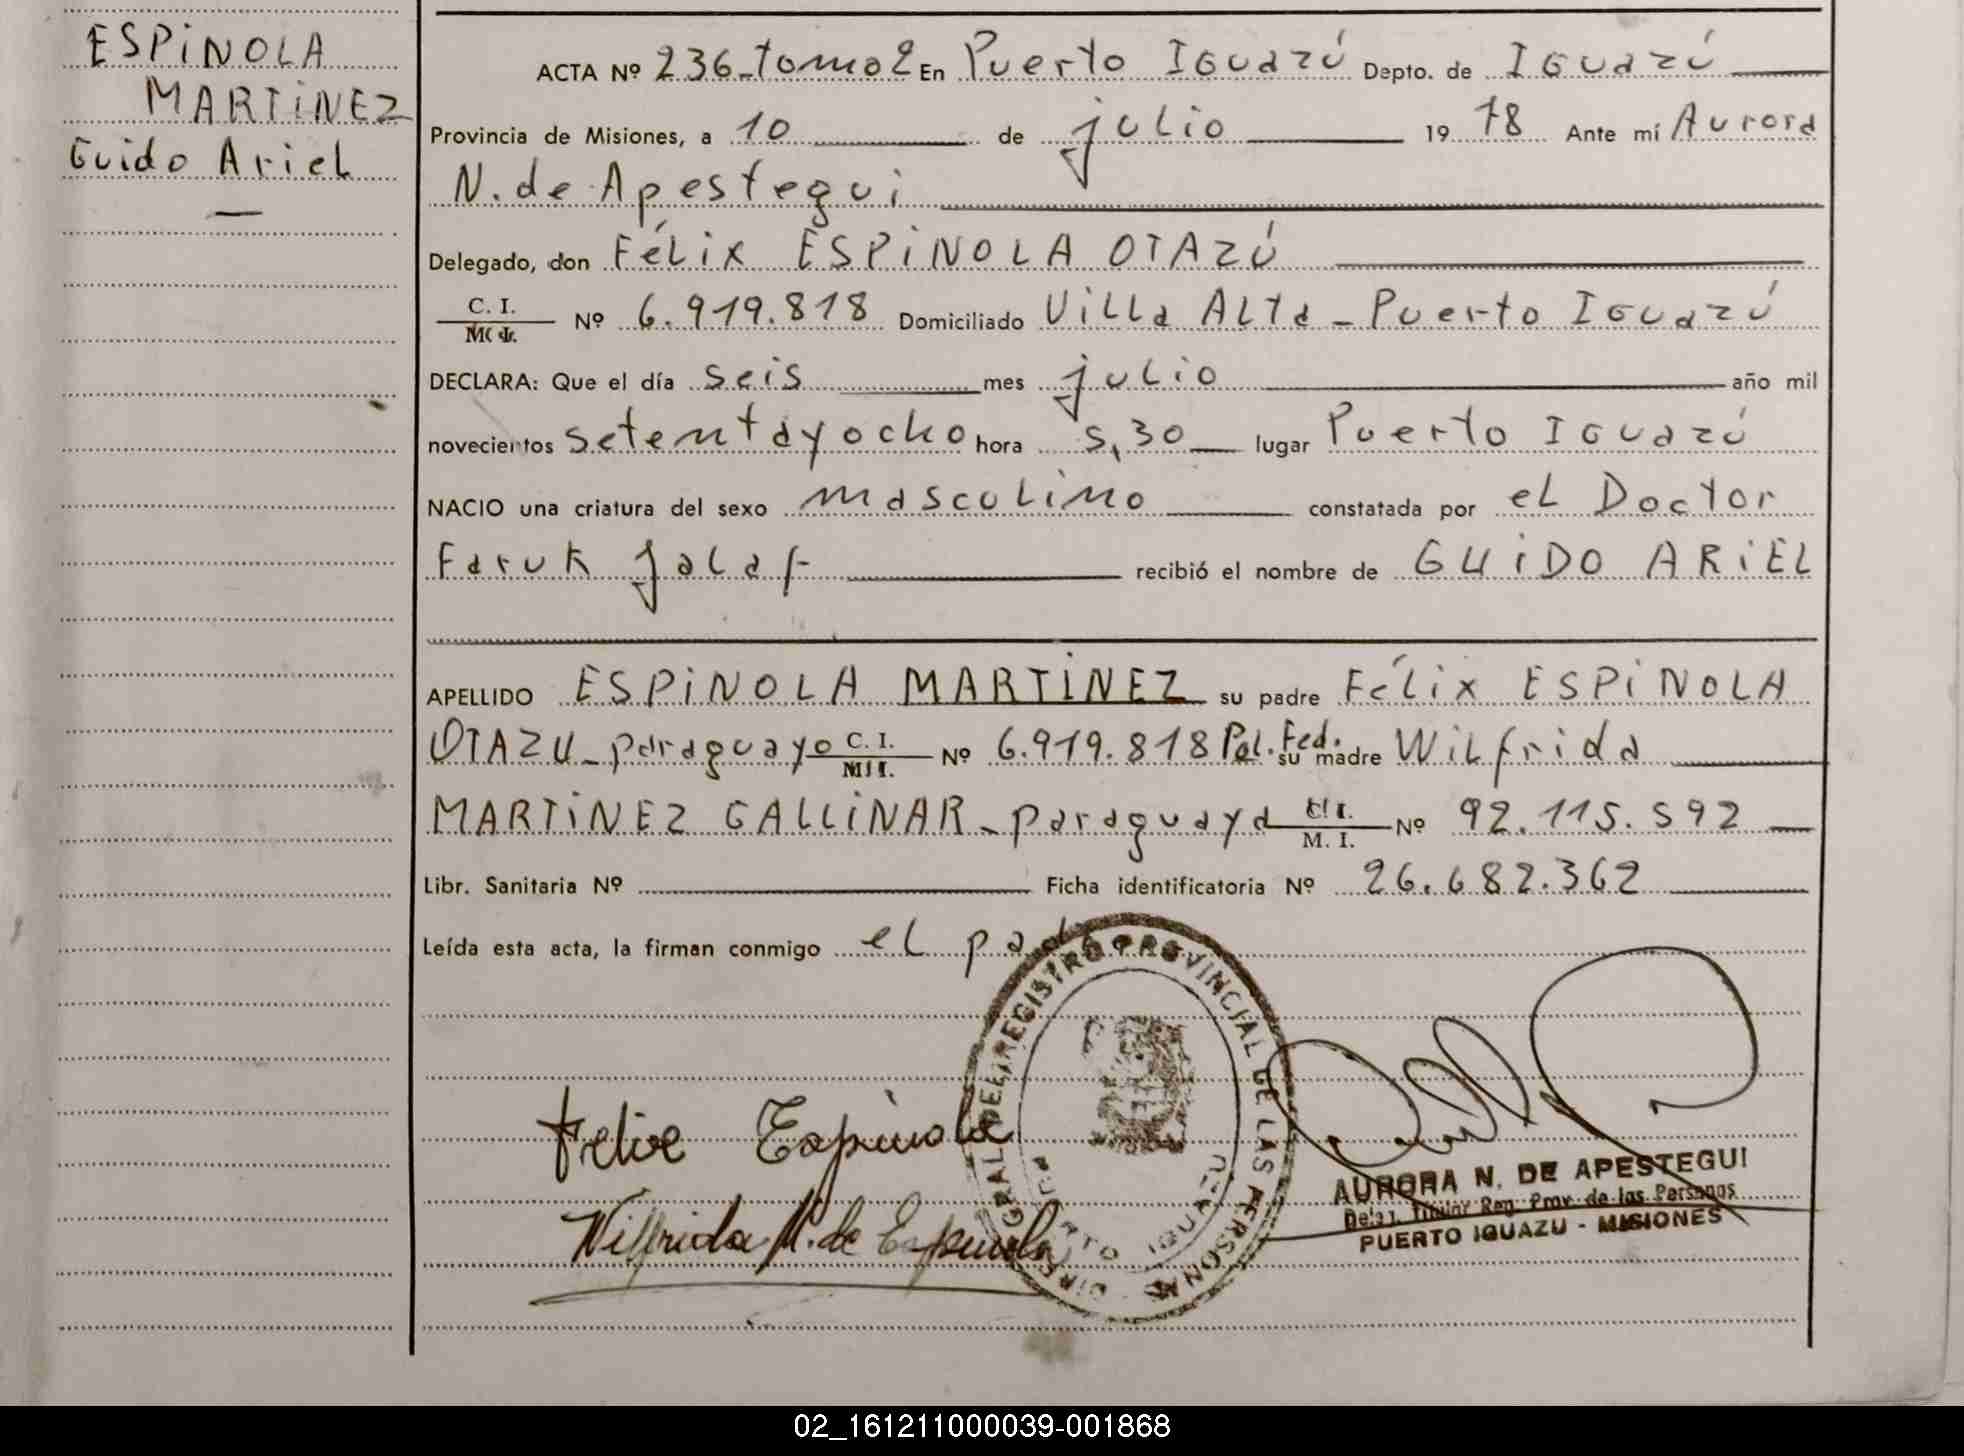 ESPiNOLA
MARTiNEZ
Guido Ariel
ACTA Nº 236-tomo 2 En Puerto Iguazú Depto. de Iguazú
Provincia de Misiones, a 10 de julio 19 78 Ante mí Aurora
N. de Apestegui
Delegado, don Félix ESPiNOLA OTAZÚ
C. I.
Nº 6.919.818 Domiciliado Villa Alta - Puerto Iguazú
DECLARA: Que el día seis mes julio año mil
novecientos setenta y ocho hora 5,30 lugar Puerto Iguazú
NACIO una criatura del sexo masculino constatada por el Doctor
Faruk Jalaf recibió el nombre de GUiDO ARiEL
APELLIDO ESPiNOLA MARTiNEZ su padre Félix ESPiNOLA
OTAZU - paraguayo C. I. Nº 6.919.818 Pol. Fed. su madre Wilfrida
MARTiNEZ GALLiNAR - paraguaya M. I. Nº 92.115.592
Libr. Sanitaria Nº Ficha identificatoria Nº 26.682.362
Leída esta acta, la firman conmigo el padre
DIREC. GRAL. DEL REGISTRO PROVINCIAL DE LAS PERSONAS
Felix Espinola
Wilfrida M. de Espinola
AURORA N. DE APESTEGUI
Deleg. Titular Reg. Prov. de las Personas
PUERTO IGUAZU - MISIONES
02_161211000039-001868